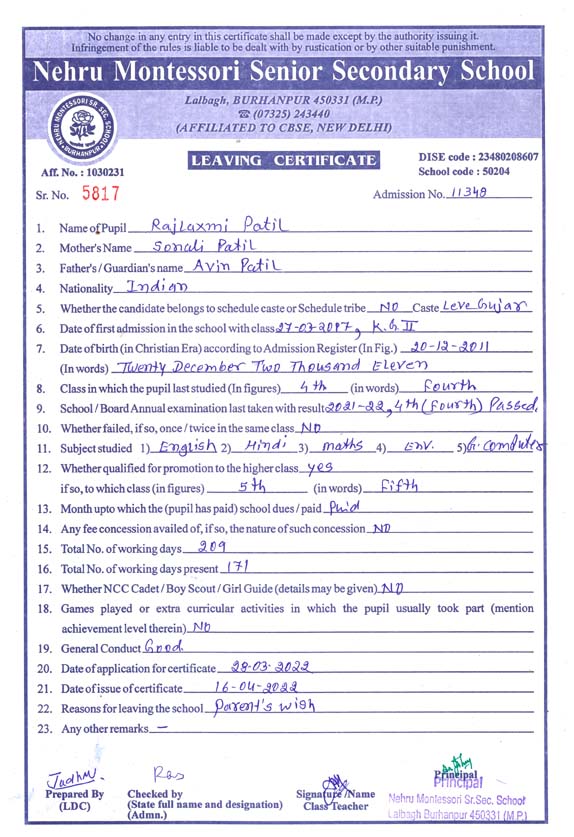 No change in any entry in this certificate shall be made except by the authority issuing it.
Infringement of the rules is liable to be dealt with by rustication or by other suitable punishment.
Nehru Montessori Senior Secondary School
Lalbagh, BURHANPUR 450331 (M.P.)
☎ (07325) 243440
(AFFILIATED TO CBSE, NEW DELHI)
NEHRU MONTESSORI SR. SEC. SCHOOL
BURHANPUR
LEAVING CERTIFICATE
DISE code : 23480208607
Aff. No. : 1030231
School code : 50204
Sr. No. 5817
Admission No. 11348
1. Name of Pupil Rajlaxmi Patil
2. Mother's Name Sonali Patil
3. Father's / Guardian's name Avin Patil
4. Nationality Indian
5. Whether the candidate belongs to schedule caste or Schedule tribe NO Caste Leve Gujar
6. Date of first admission in the school with class 27-03-2017, K.G II
7. Date of birth (in Christian Era) according to Admission Register (In Fig.) 20-12-2011
(In words) Twenty December Two Thousand Eleven
8. Class in which the pupil last studied (In figures) 4th (in words) Fourth
9. School / Board Annual examination last taken with result 2021-22, 4th (Fourth) Passed.
10. Whether failed, if so, once / twice in the same class NO
11. Subject studied 1) English 2) Hindi 3) maths 4) Env. 5) G. Computer
12. Whether qualified for promotion to the higher class yes
if so, to which class (in figures) 5th (in words) Fifth
13. Month upto which the (pupil has paid) school dues / paid Paid
14. Any fee concession availed of, if so, the nature of such concession NO
15. Total No. of working days 209
16. Total No. of working days present 171
17. Whether NCC Cadet / Boy Scout / Girl Guide (details may be given) NO
18. Games played or extra curricular activities in which the pupil usually took part (mention
achievement level therein) NO
19. General Conduct Good
20. Date of application for certificate 28-03-2022
21. Date of issue of certificate 16-04-2022
22. Reasons for leaving the school Parent's wish
23. Any other remarks —
Prepared By
(LDC)
Checked by
(State full name and designation)
(Admn.)
Signature /Name
Class Teacher
Principal
Principal
Nehru Montessori Sr.Sec. School
Lalbagh Burhanpur 450331 (M.P.)